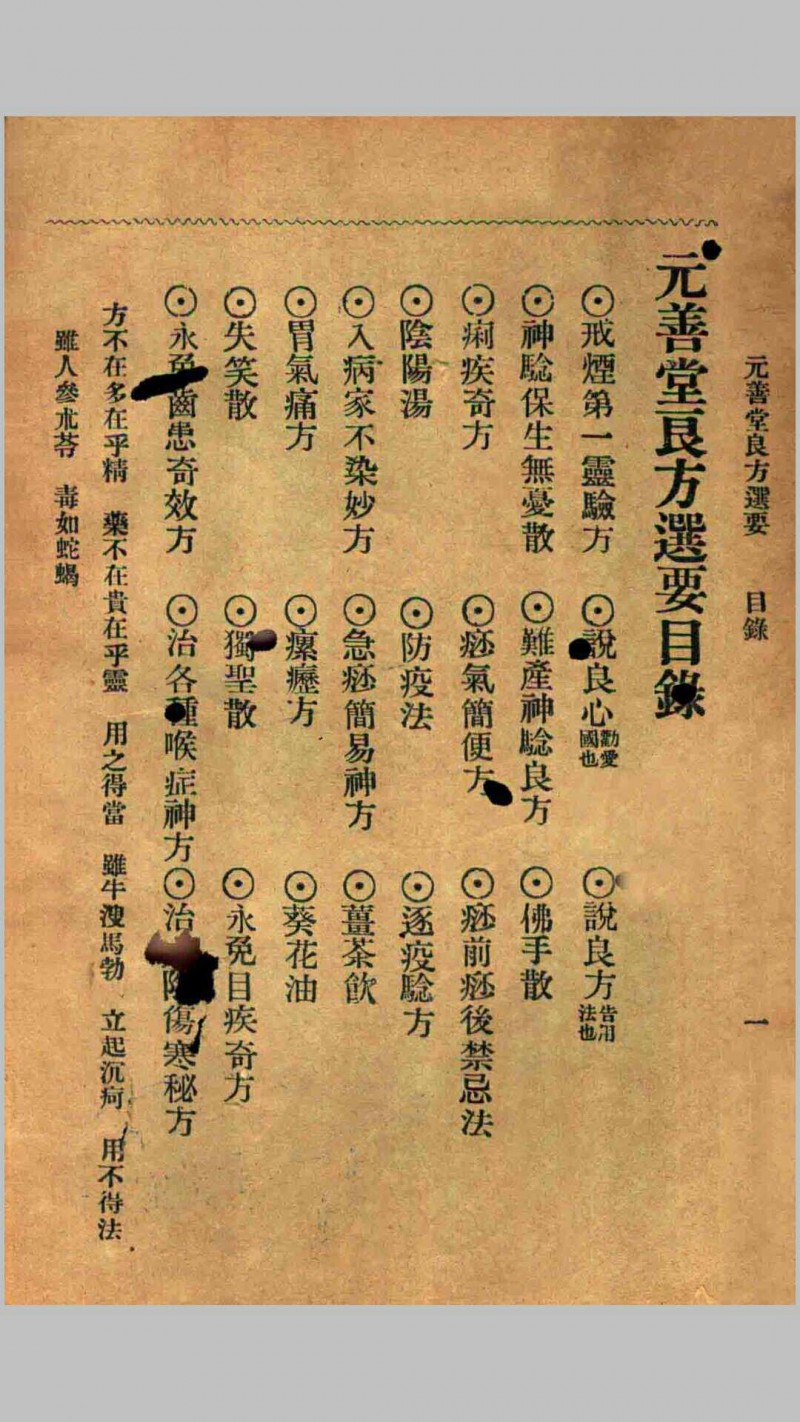 元善堂良方選要　目錄　一
元善堂良方選要目錄
⊙戒煙第一靈驗方　⊙說良心勸愛國也　⊙說良方告用法也
⊙神騐保生無憂散　⊙難產神騐良方　⊙佛手散
⊙痢疾奇方　⊙痧氣簡便方　⊙痧前痧後禁忌法
⊙陰陽湯　⊙防疫法　⊙逐疫騐方
⊙入病家不染妙方　⊙急痧簡易神方　⊙薑茶飲
⊙胃氣痛方　⊙瘰癧方　⊙葵花油
⊙失笑散　⊙獨聖散　⊙永免目疾奇方
⊙永免齒患奇效方　⊙治各種喉症神方　⊙治傷寒秘方
方不在多在乎精　藥不在貴在乎靈　用之得當　雖牛溲馬勃　立起沉疴　用不得法
雖人參朮苓　毒如蛇蝎